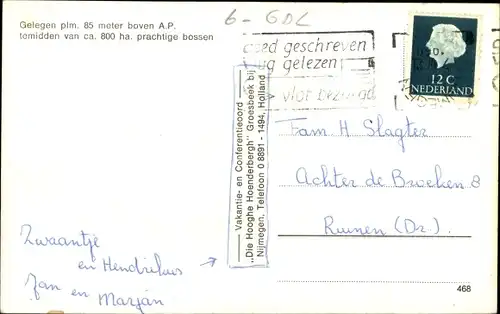 Gelegen plm. 85 meter boven A.P.
temidden van ca. 800 ha. prachtige bossen
6 - GDL
goed geschreven
vlug gelezen
vlot bezorgd
12 C
NEDERLAND
Vakantie- en Conferentieoord
„Die Hooghe Hoenderbergh" Groesbeek bij
Nijmegen, Telefoon 0 8891 - 1494, Holland
Fam. H. Slagter
Achter de Broeken 8
Ruinen (Dr.)
Zwaantje
en Hendrikus
Jan en Marjan
468